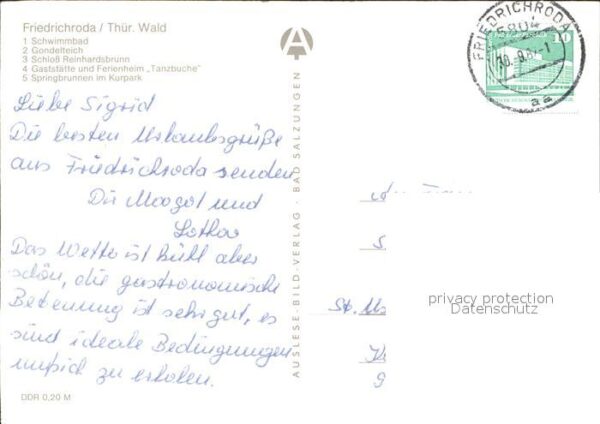 Friedrichroda / Thür. Wald
1 Schwimmbad
2 Gondelteich
3 Schloß Reinhardsbrunn
4 Gaststätte und Ferienheim „Tanzbuche“
5 Springbrunnen im Kurpark
Liebe Sigrid
Die besten Urlaubsgrüße
aus Friedrichroda senden
Dir Margot und
Lothar
Das Wetter ist kühl aber
schön, die gastronomische
Betreuung ist sehr gut, es
sind ideale Bedingungen
um sich zu erholen.
DDR 0,20 M
AUSLESE-BILD-VERLAG · BAD SALZUNGEN
FRIEDRICHRODA
5804
aa
10
St.
privacy protection
Datenschutz